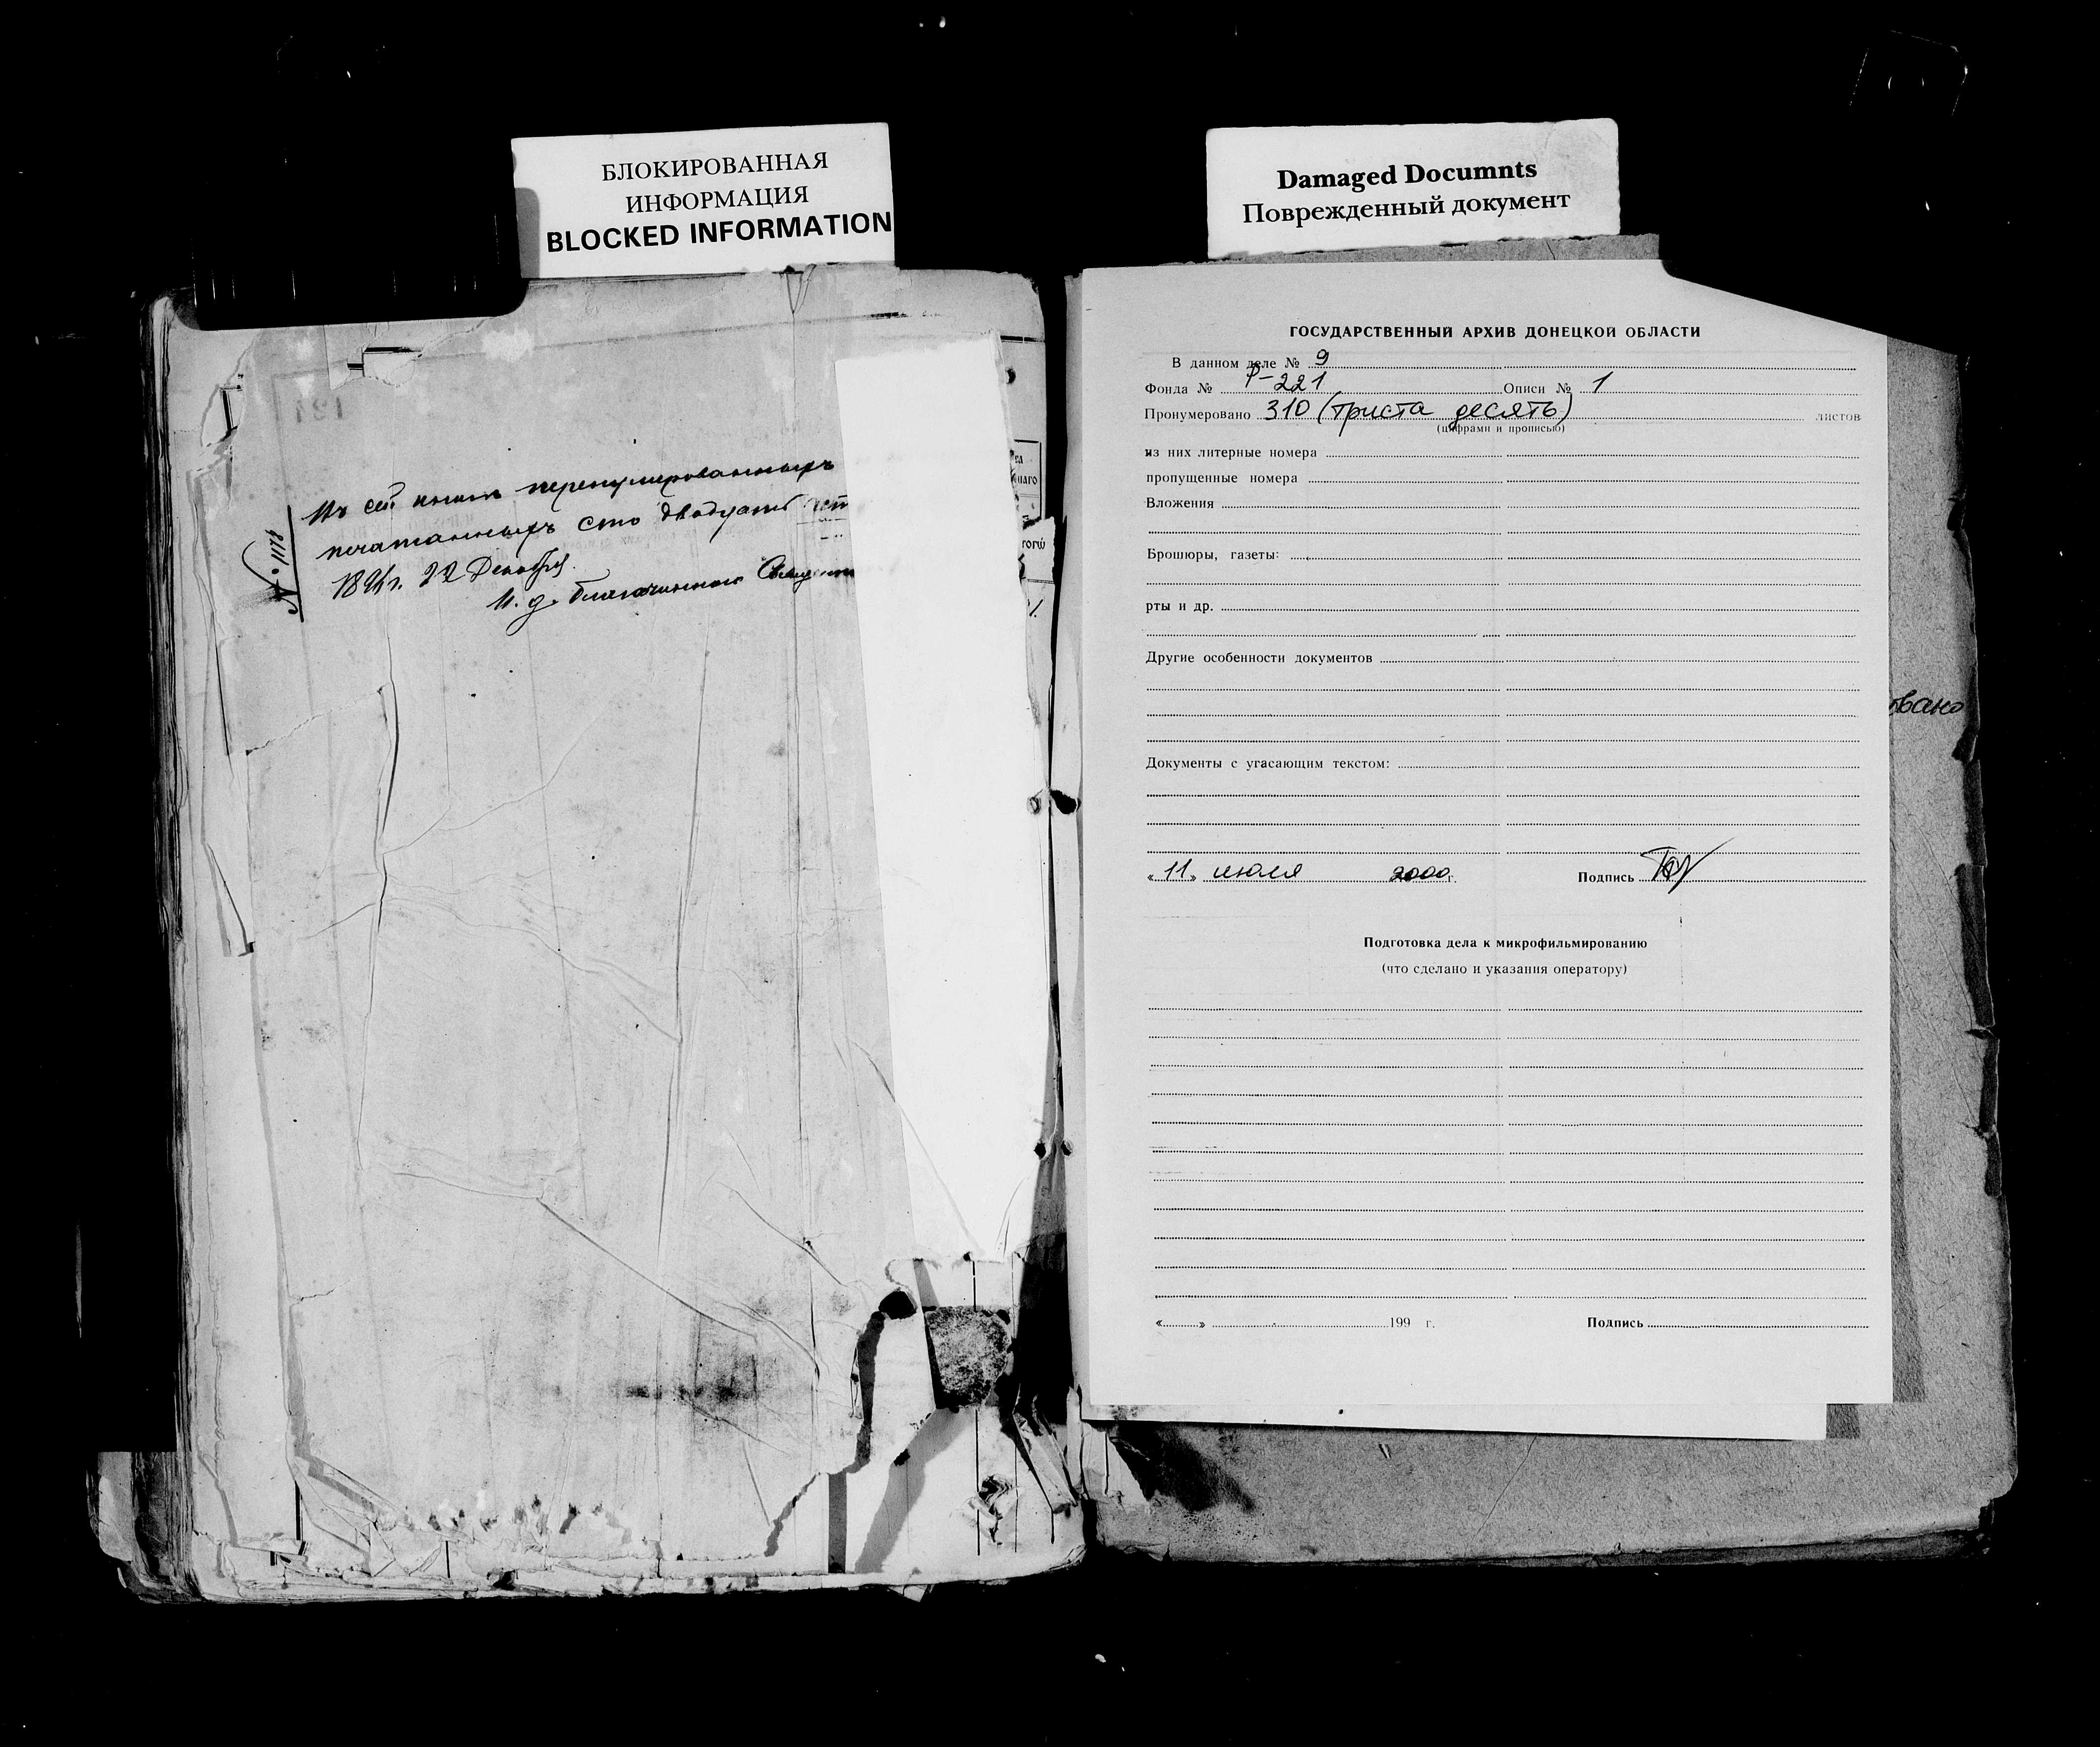 БЛОКИРОВАННАЯ
ИНФОРМАЦИЯ
BLOCKED INFORMATION
Damaged Documnts
Поврежденный документ
№ 1178
Въ сей книгѣ перенумерованныхъ
печатанныхъ сто двадцать
22 Декабря
И. д. благочиннаго
ГОСУДАРСТВЕННЫЙ АРХИВ ДОНЕЦКОЙ ОБЛАСТИ
В данном деле № 9
Фонда № Р-221 Описи № 1
Пронумеровано 310 (триста десять) листов
(цифрами и прописью)
из них литерные номера
пропущенные номера
Вложения
Брошюры, газеты:
рты и др.
Другие особенности документов
Документы с угасающим текстом:
« 11 » июля 2000 г. Подпись
Подготовка дела к микрофильмированию
(что сделано и указания оператору)
« » 199 г. Подпись
овано